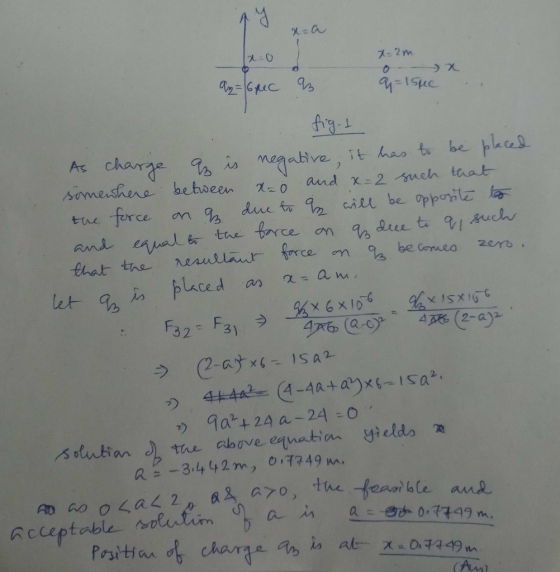 y
x=a
x=0
x=2m
x
q₂=6μC
q₃
q₁=15μC
fig.1
As charge q₃ is negative, it has to be placed
somewhere between x=0 and x=2 such that
the force on q₃ due to q₂ will be opposite to
and equal to the force on q₃ due to q₁ such
that the resultant force on q₃ becomes zero.
let q₃ is placed as x=a m.
∴ F₃₂ = F₃₁ ⇒ q₃×6×10⁻⁶ / 4πε₀(a-0)² = q₃×15×10⁻⁶ / 4πε₀(2-a)²
⇒ (2-a)²×6 = 15a²
⇒ 4+4a²= (4-4a+a²)×6=15a².
⇒ 9a²+24a-24=0
solution of the above equation yields
a = -3.442m, 0.7749m.
as 0<a<2, & a>0, the feasible and
acceptable solution of a is a = 0.7749m.
Position of charge q₃ is at x=0.7749m.
(Ans)